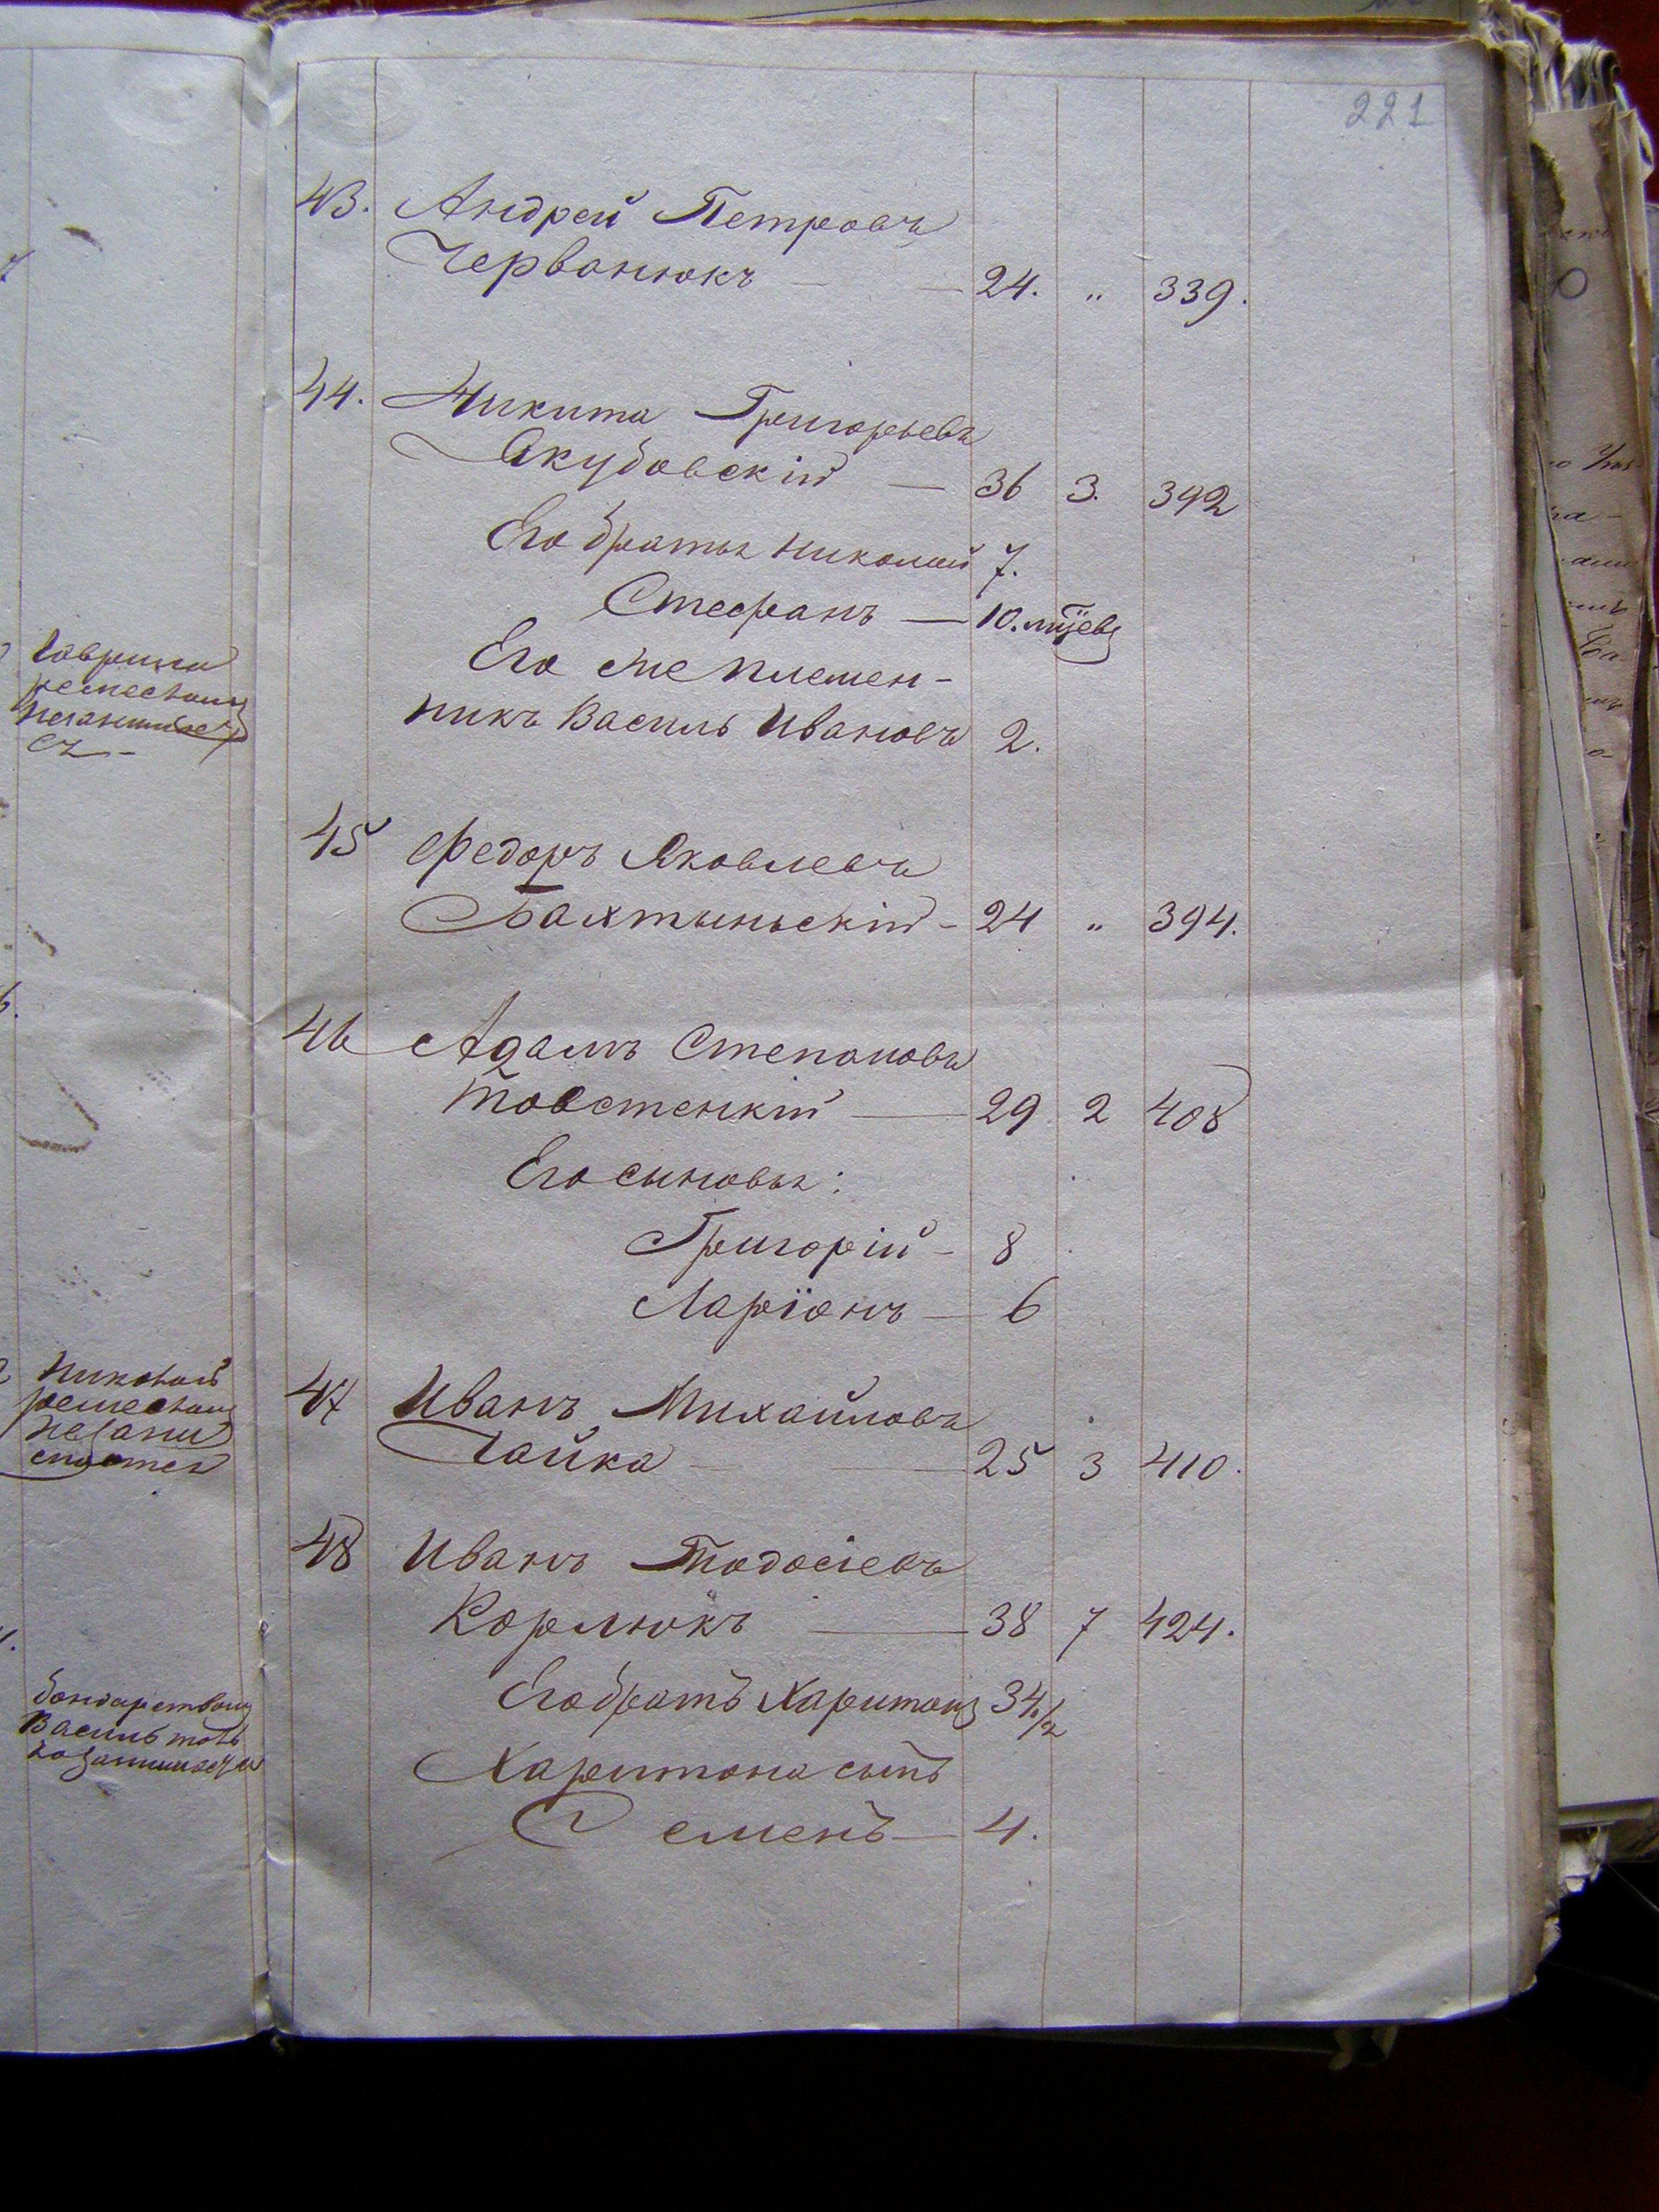 221
43. Андрей Петровъ
Черванюкъ — — 24. „ 339.
44. Никита Григорьевъ
Якубовскій — 36 3. 392
Его братья Николай 7.
Стефанъ — 10.
Его же племен-
никъ Василь Ивановъ 2.
45 Федоръ Яковлевъ
Бахтыньскій - 24 „ 394.
46 Адамъ Степановъ
Товстенкій — 29 2 408
Его сыновья:
Григорій - 8
Ларіонъ — 6
47 Иванъ Михайловъ
Чайка — — 25 3 410.
48 Иванъ Тодосіевъ
Корлюкъ — 38 7 424.
Его братъ Харитонъ 34 1/2
Харитона сынъ
Семенъ — 4.
Гаврило
ремествомъ
Николай
ремествомъ
незани
бондарствомъ
Василь
занимается